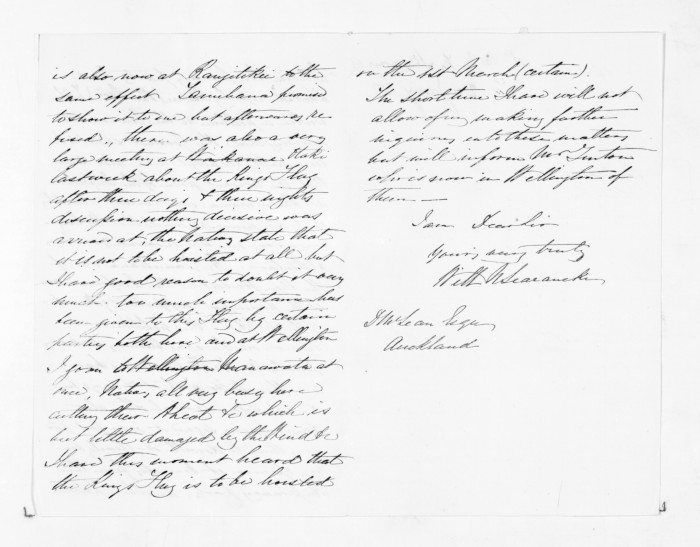 is also now at Rangitikei to the
same effect Tamihana promised
to show it to me but afterwards re
fused, there was also a very
large meeting at Waikanae Otaki
last week about the Kings Flag
after three days & three nights
discussion nothing decisive was
arrived at, the Natives state that
it is not to be hoisted at all but
I have good reason to doubt it very
much. too much importance has
been given to this Flag by certain
parties both here and at Wellington
I go on to Manawatu at
once, Natives all very busy here
cutting their Wheat &c which is
but little damaged by the Wind &c
I have this moment heard that
the Kings Flag is to be hoisted
on the 1st March (certain).
The short time I have will not
allow of my making further
inquiries into these matters
but will inform Mr Fenton
who is now in Wellington of
them —
I am Dear Sir
Yours very truly
Will N Searancke
D McLean Esqre
Auckland